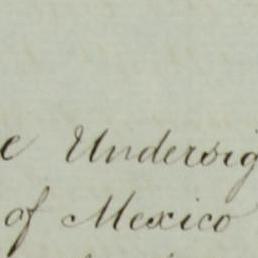 e Undersig
of Mexico